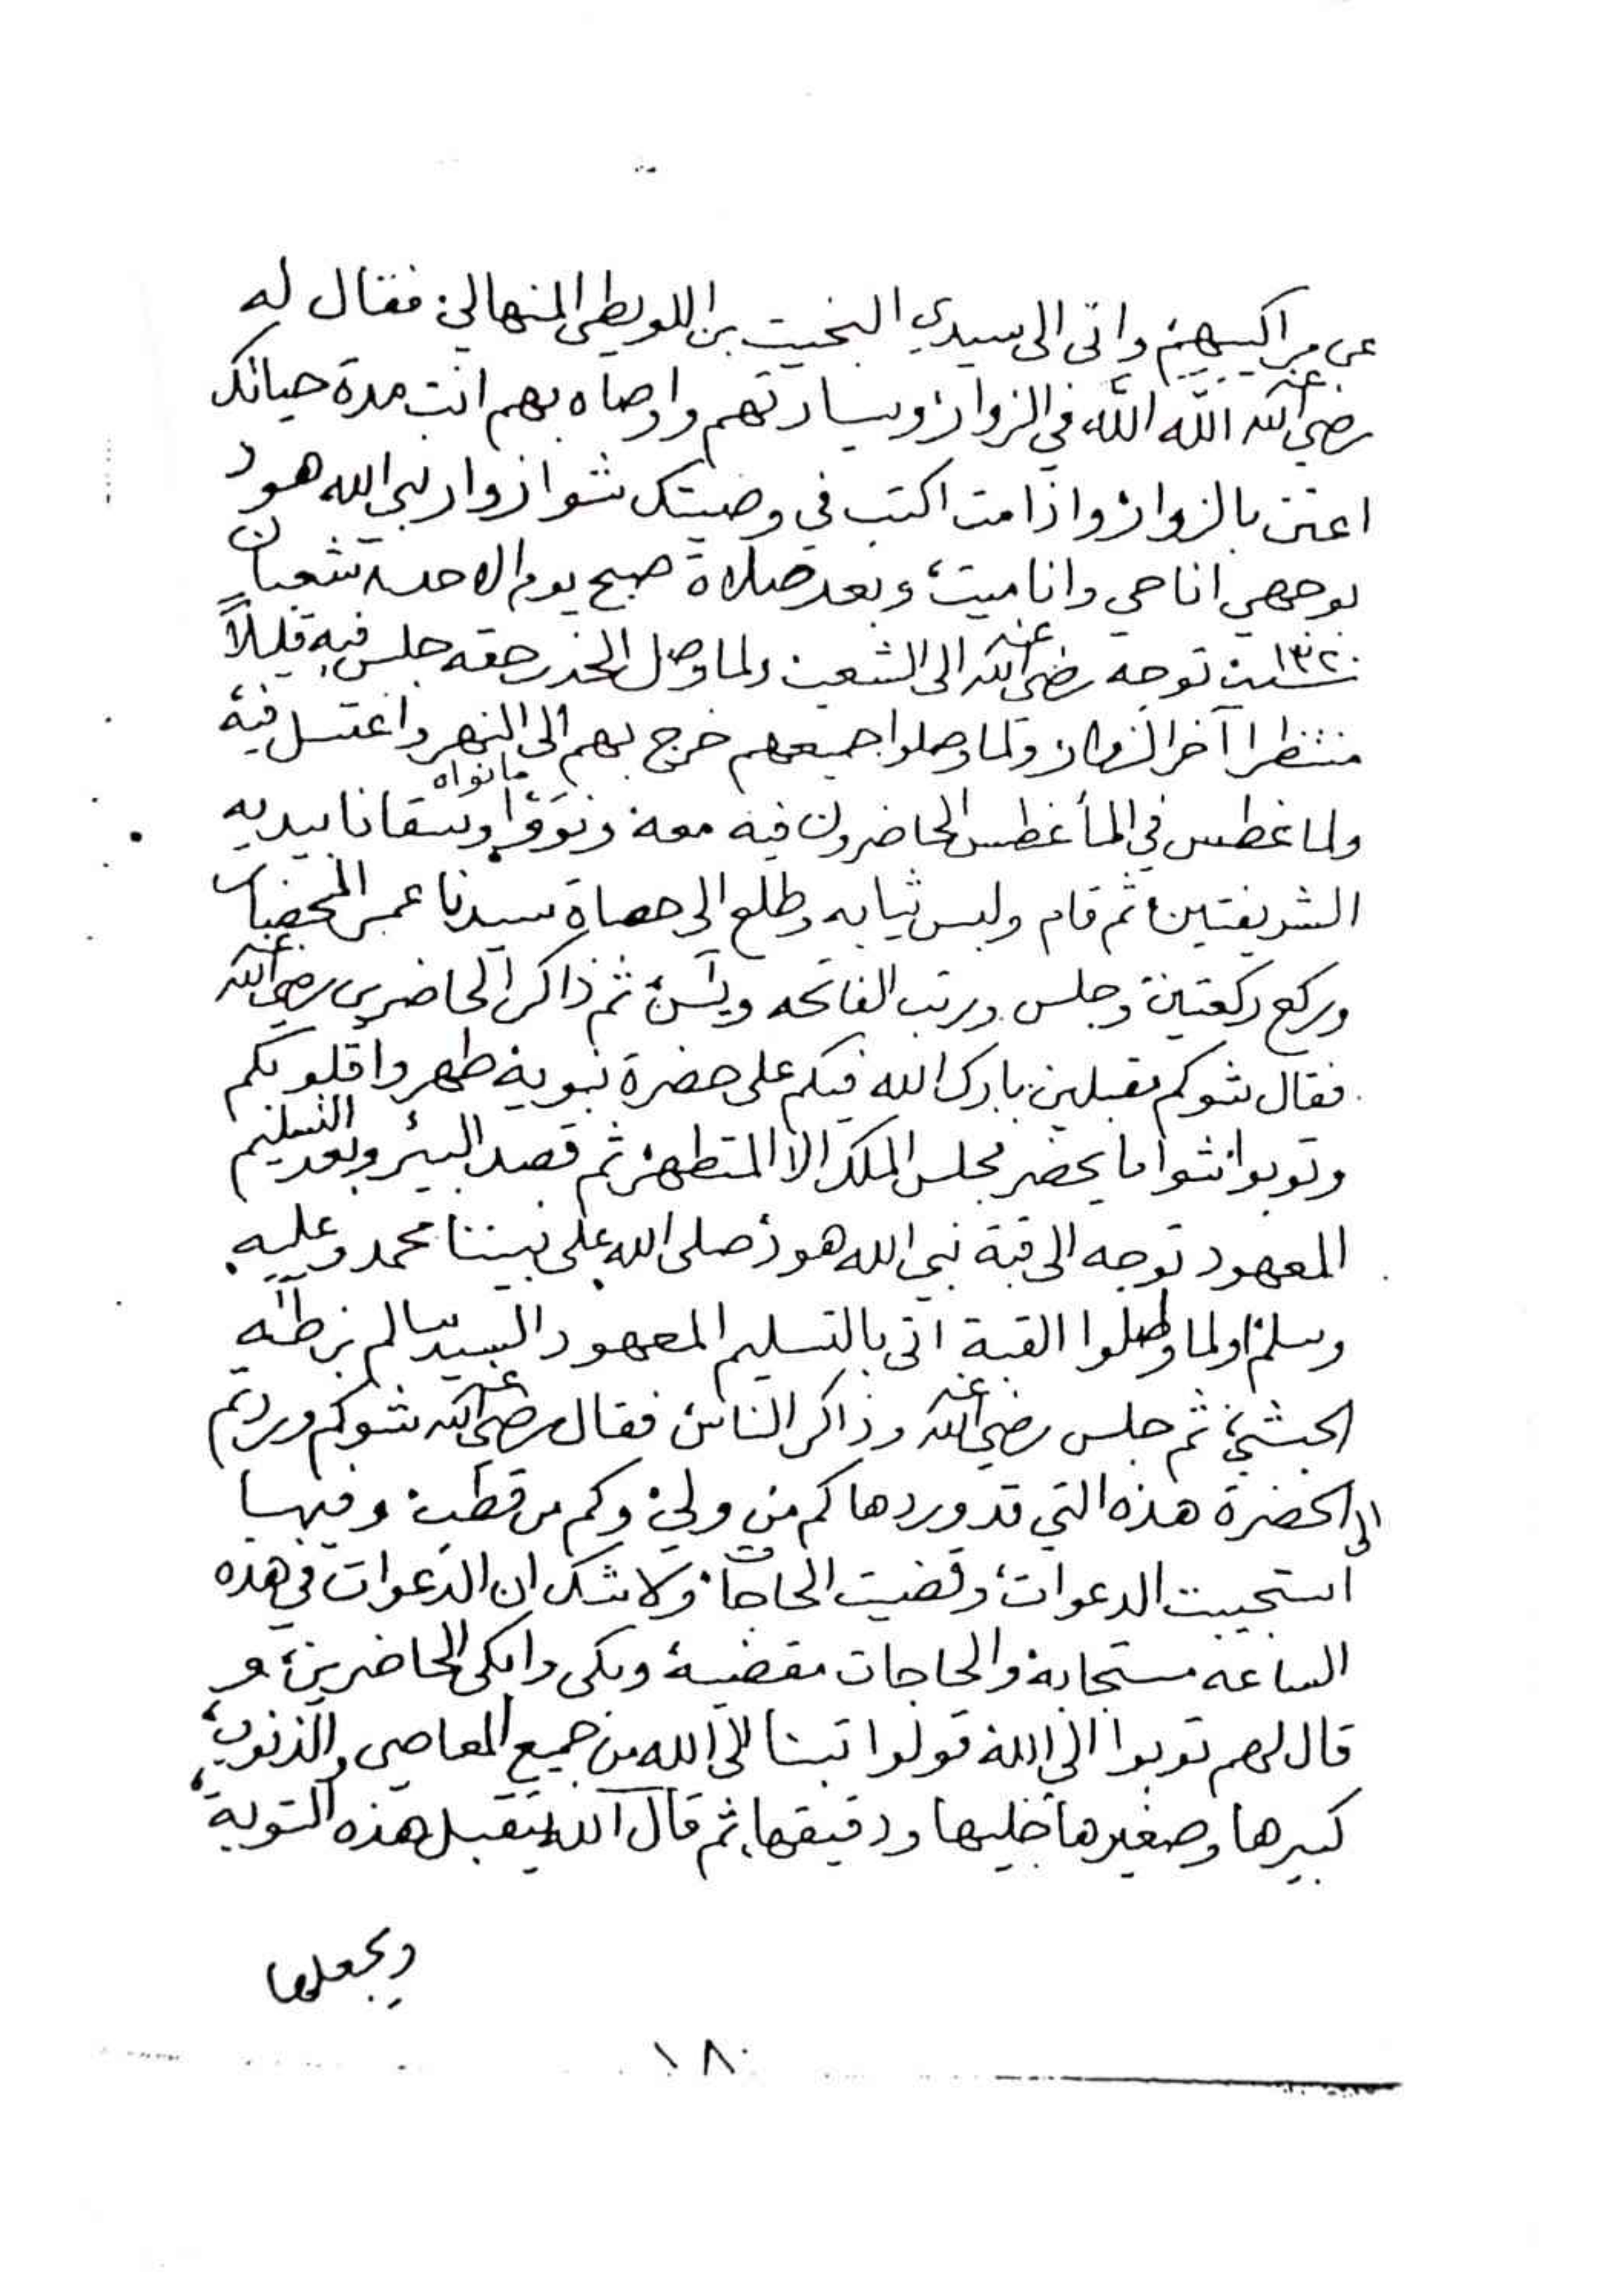 عن مراكيبهم واتى الى سيدي البخيت بن اللويطي المنهالي فقال له
رضي الله عنه الله الله في الزوار وسيارتهم واوصاه بهم انت مدة حياتك
اعتن بالزوار واذا مت اكتب في وصيتك شوا زوار نبي الله هود
بوجهي انا حي وانا ميت، وبعد صلاة صبح يوم الاحد شعبان
سنة ١٣٢٠ توجه رضي الله عنه الى الشعب ولما وصل الخدر حقه جلس فيه قليلاً
منتظرا آخر الزوار ولما وصلوا جميعهم خرج بهم الى النهر واغتسل فيه
ولما غطس في الماء غطس الحاضرون فيه معه ونووا مانواه وسقانا بيديه
الشريفتين ثم قام ولبس ثيابه وطلع الى حصاة سيدنا عمر المحضار
وركع ركعتين وجلس ورتب الفاتحه ويس ثم ذاكر الحاضرين رضي الله عنه
فقال شوكم مقبلين بارك الله فيكم على حضرة نبوية طهروا قلوبكم
وتوبوا شوا ما يحضر مجلس الملك الا المتطهر ثم قصد البئر وبعد التسليم
المعهود توجه الى قبة نبي الله هود صلى الله على نبينا محمد وعليه
وسلم ولما وصلوا القبة اتى بالتسليم المعهود السيد سالم بن طه
الحبشي ثم جلس رضي الله عنه وذاكر الناس فقال رضي الله عنه شوكم وردتم
الى الحضرة هذه التي قد وردها كم من ولي وكم من قطب وفيها
استجيبت الدعوات وقضيت الحاجات ولا شك ان الدعوات في هذه
الساعه مستجابة والحاجات مقضية وبكى وابكى الحاضرين، و
قال لهم توبوا الى الله قولوا تبنا الى الله من جميع المعاصي والذنوب،
كبيرها وصغيرها جليها ودقيقها، ثم قال الله يتقبل هذه التوبة،
ويجعلها
١٨٠